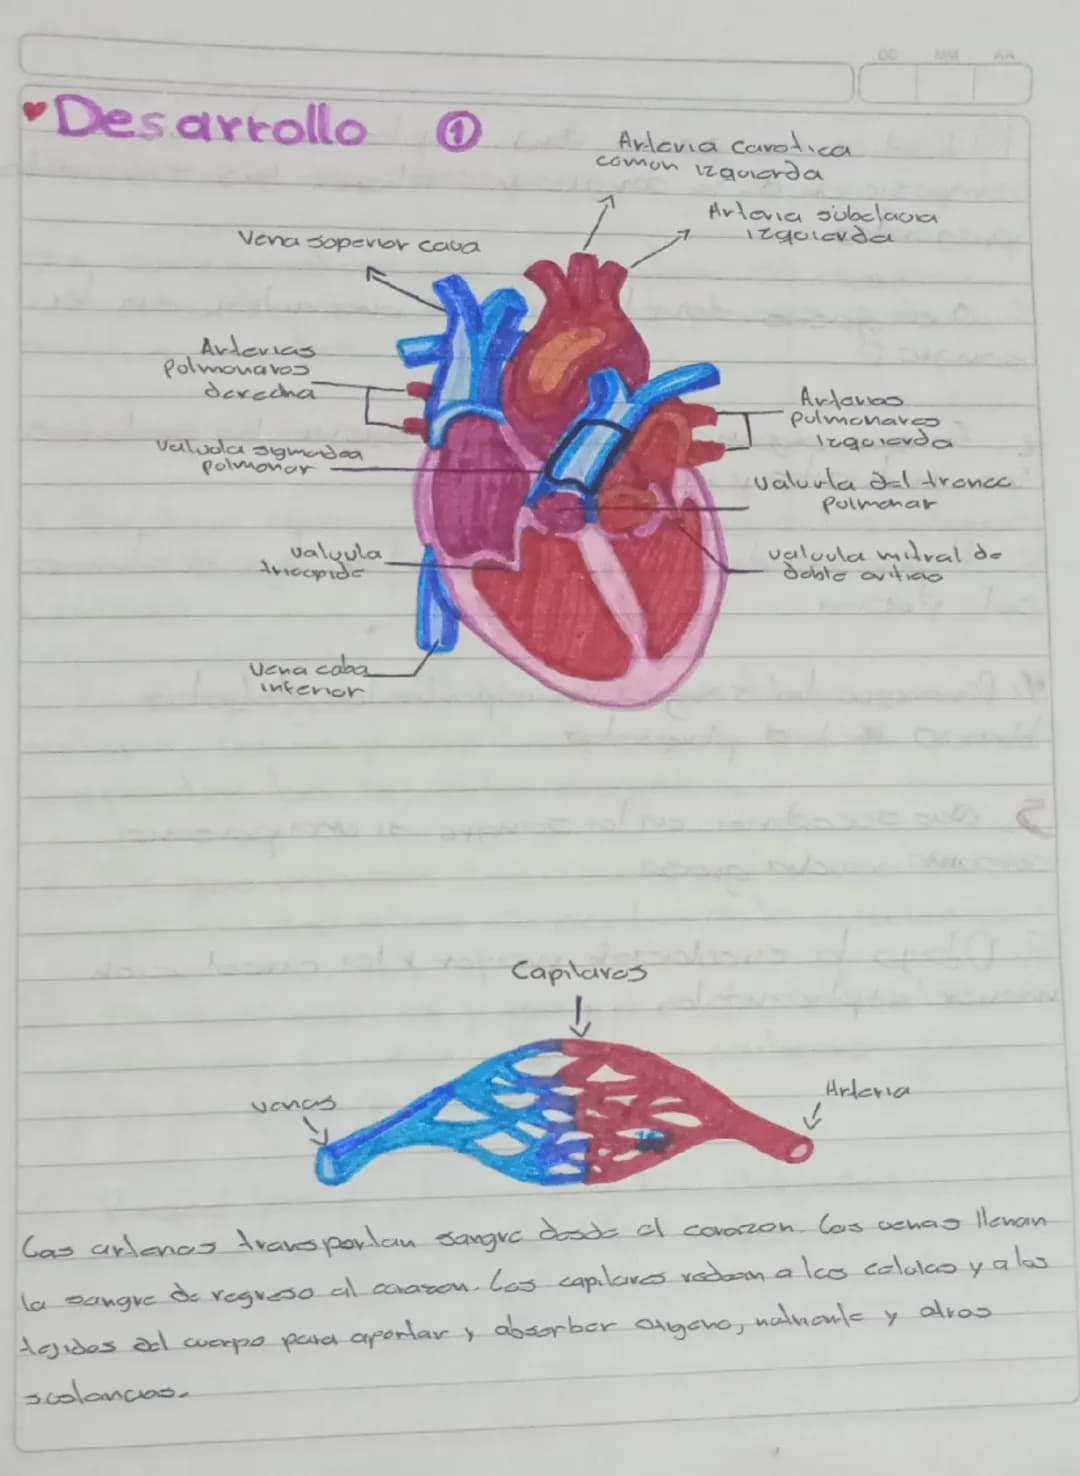 DD MM AA
Desarrollo ①
Arteria carotica
comun izquierda
Arteria subclavia
izquierda
Vena soperior cava
Arterias
polmonares
derecha
Arterias
pulmonares
izquierda
valvula sigmoidea
polmonar
valuvla del tronco
Pulmonar
valvula
tricopide
valvula mitral de
doble orifiao
Vena caba
inferior
Capilares
venas
Arteria
Las arterias transportan sangre desde el corazon. Las venas llenan
la sangre de regreso al corazon. Los capilares rodean a las celulas y a los
tejidos del cuerpo para aportar y absorber oxigeno, nutriente y otras
sustancias.